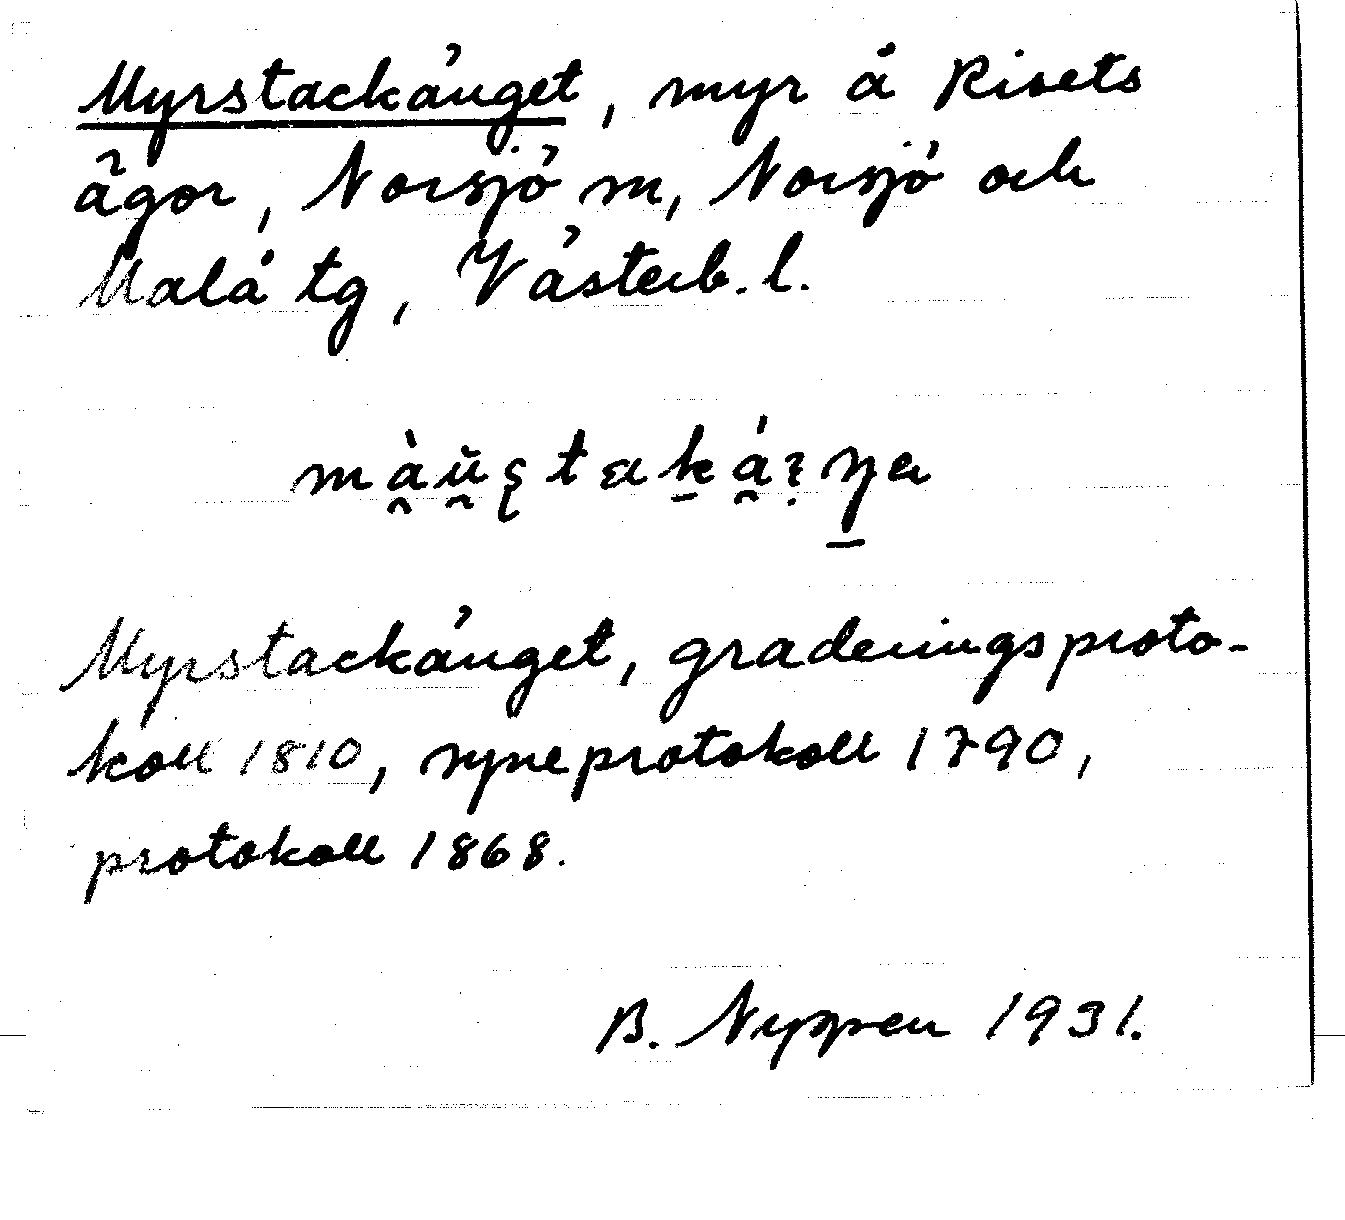 Myrstackänget, myr å Risets
ägor, Norsjö sn, Norsjö och
Malå tg, Västerb. l.
Myrstackänget, graderingsproto-
koll 1810, syneprotokoll 1790,
protokoll 1868.
B. Nygren 1931.